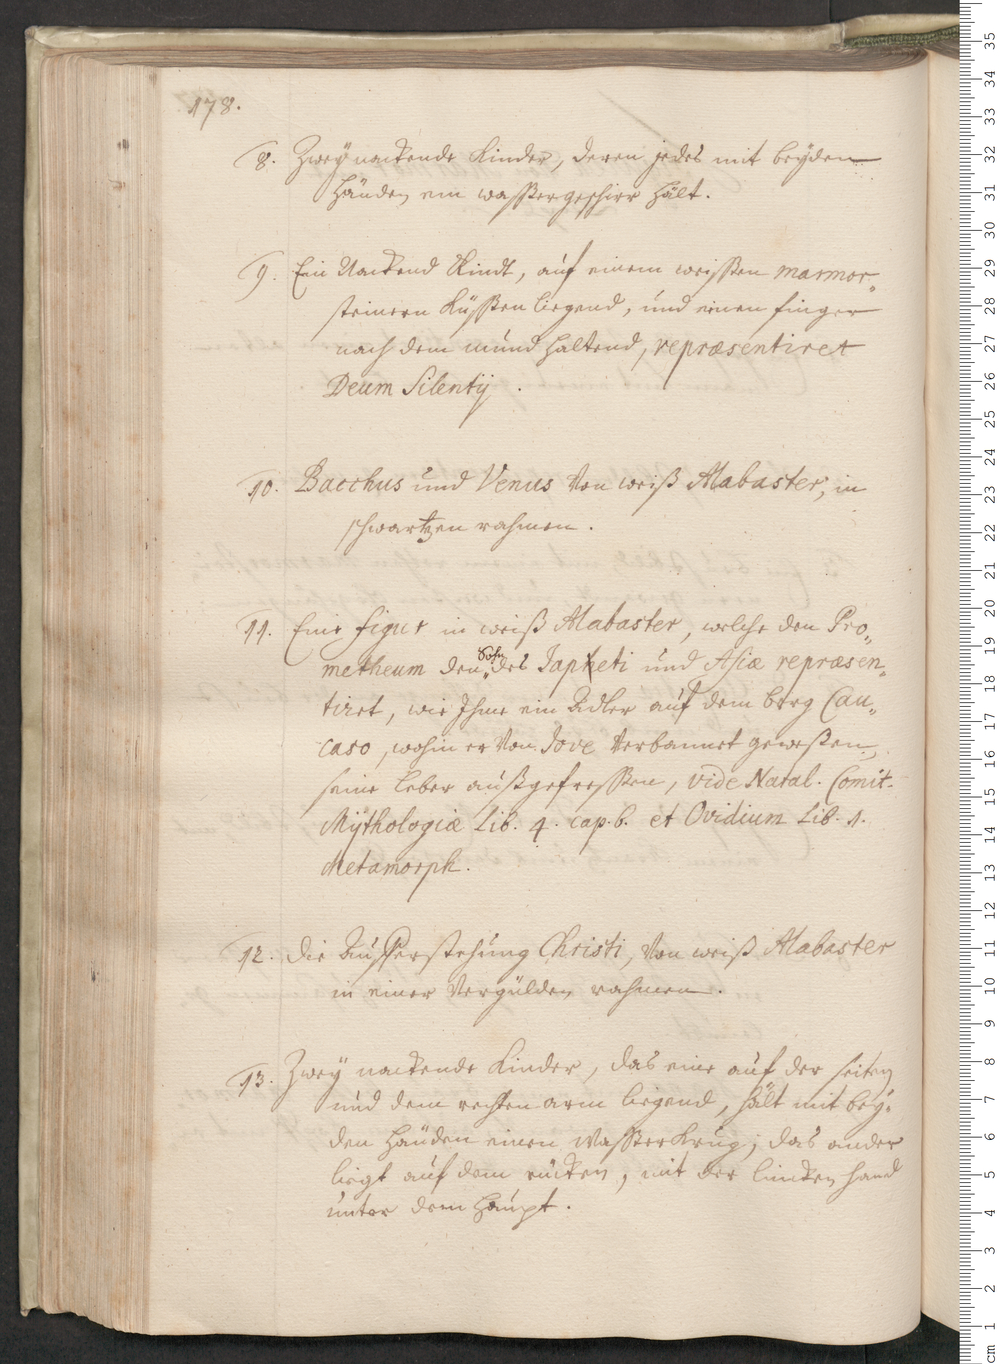 178.
8. Zwey nackende Kinder, deren jedes mit beyden
Händen ein wassergeschirr hält.
9. Ein Nackend Kindt, auf einem weissen marmor„
steinern Küssen liegend, und einen finger
nach dem mund haltend, repræsentiret
Deum Silentij.
10. Bacchus und Venus Von weiß Alabaster, in
schwartzen rahmen.
11. Eine figur in weiß Alabaster, welche den Pro„
metheum den Sohn des Japheti und Asiæ repræsen„
tiret, wie Ihme ein Adler auf dem berg Cau„
caso, wohin er Von Jove Verbannet geweßen,
seine leber außgefressen, vide Natal. Comit.
Mÿthologiæ Lib. 4. cap. 6. et Ovidium Lib. 1.
Metamorph.
12. Die Aufferstehung Christi, Von weiß Alabaster
in einer Vergülden rahmen.
13. Zwey nackende Kinder, das eine auf der seiten
und dem rechten arm liegend, hält mit bey„
den Händen einen Wasserkrug; das ander
ligt auf dem rücken, mit der lincken hand
unter dem Haupt.
cm 1 2 3 4 5 6 7 8 9 10 11 12 13 14 15 16 17 18 19 20 21 22 23 24 25 26 27 28 29 30 31 32 33 34 35